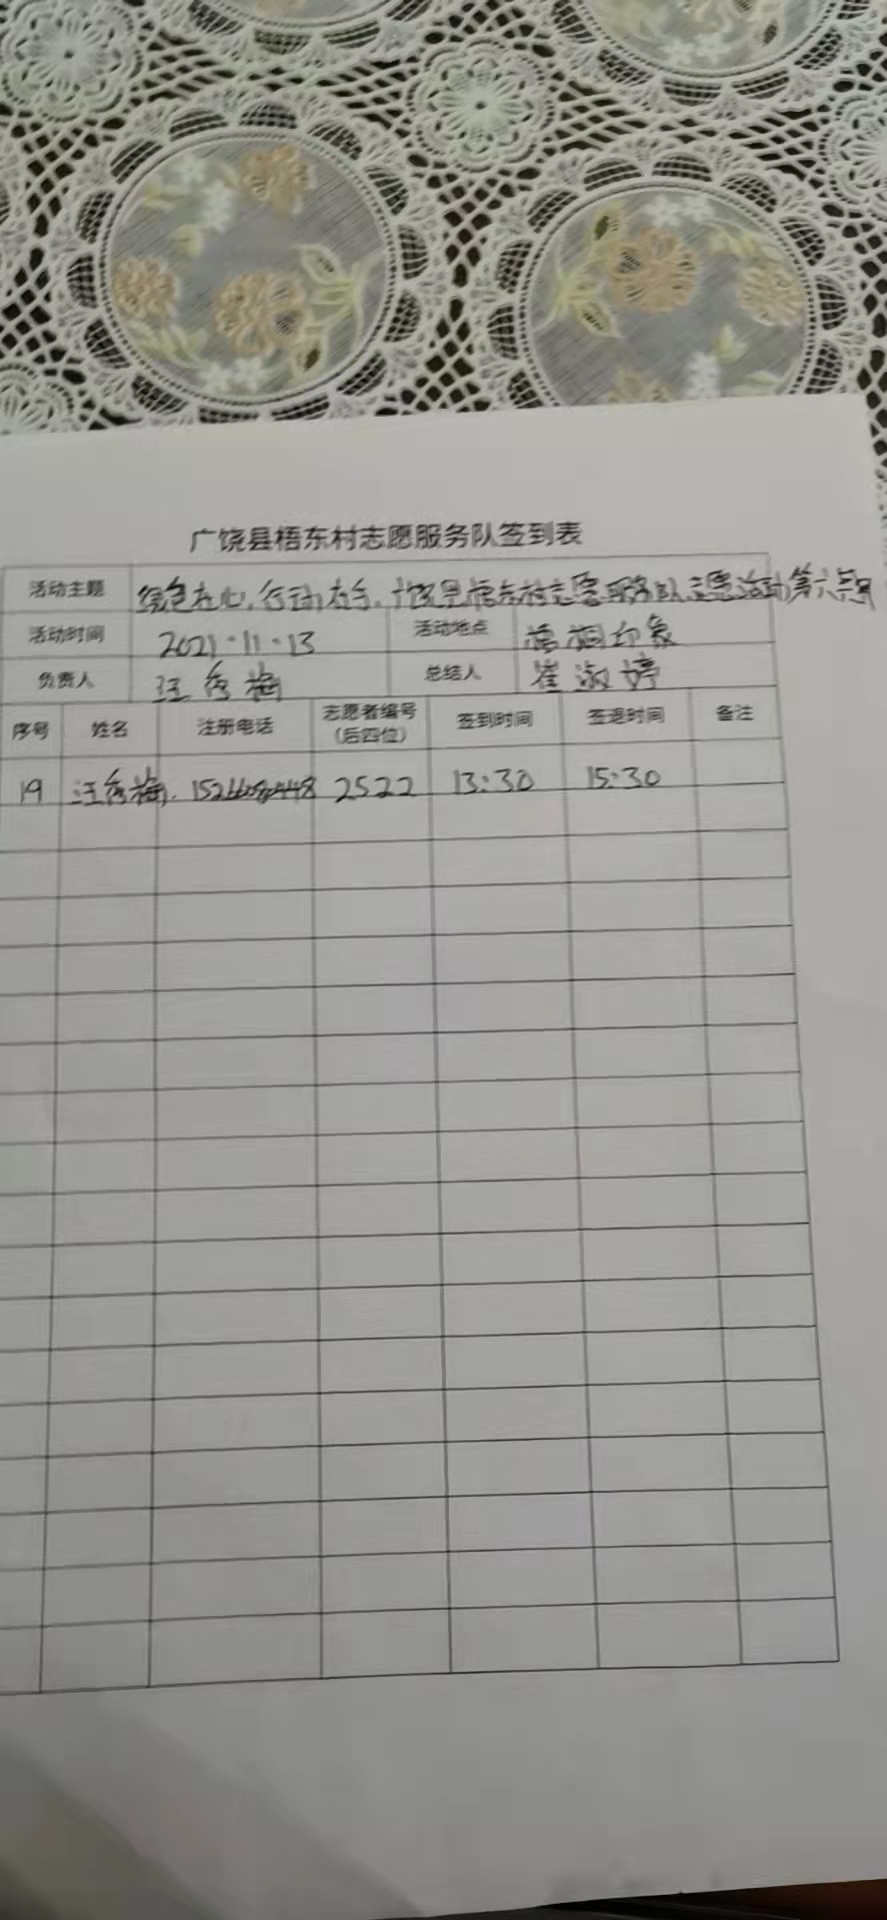 广饶县梧东村志愿服务队签到表
活动主题 绿色在心,行动在手,广饶县梧东村志愿服务队志愿活动第六期
活动时间 2021·11·13 活动地点 梧桐印象
负责人 汪秀梅 总结人 崔淑婷
序号 姓名 注册电话 志愿者编号(后四位) 签到时间 签退时间 备注
19 汪秀梅 2522 13:30 15:30